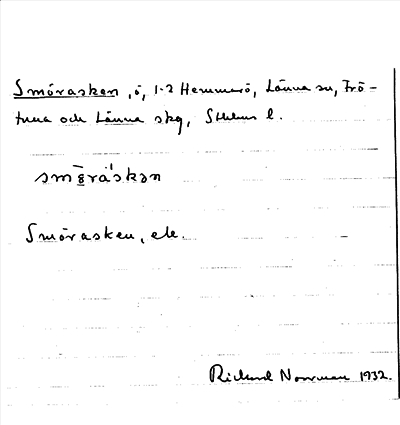 Smörasken, ö, 1-2 Hemmarö, Länna sn, Frö-
tuna och Länna skg, Sthlms l.
Smörasken, ek.
Rickard Norrman 1932.